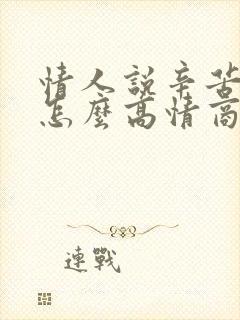 情人說辛苦
怎麼高情商
連戰